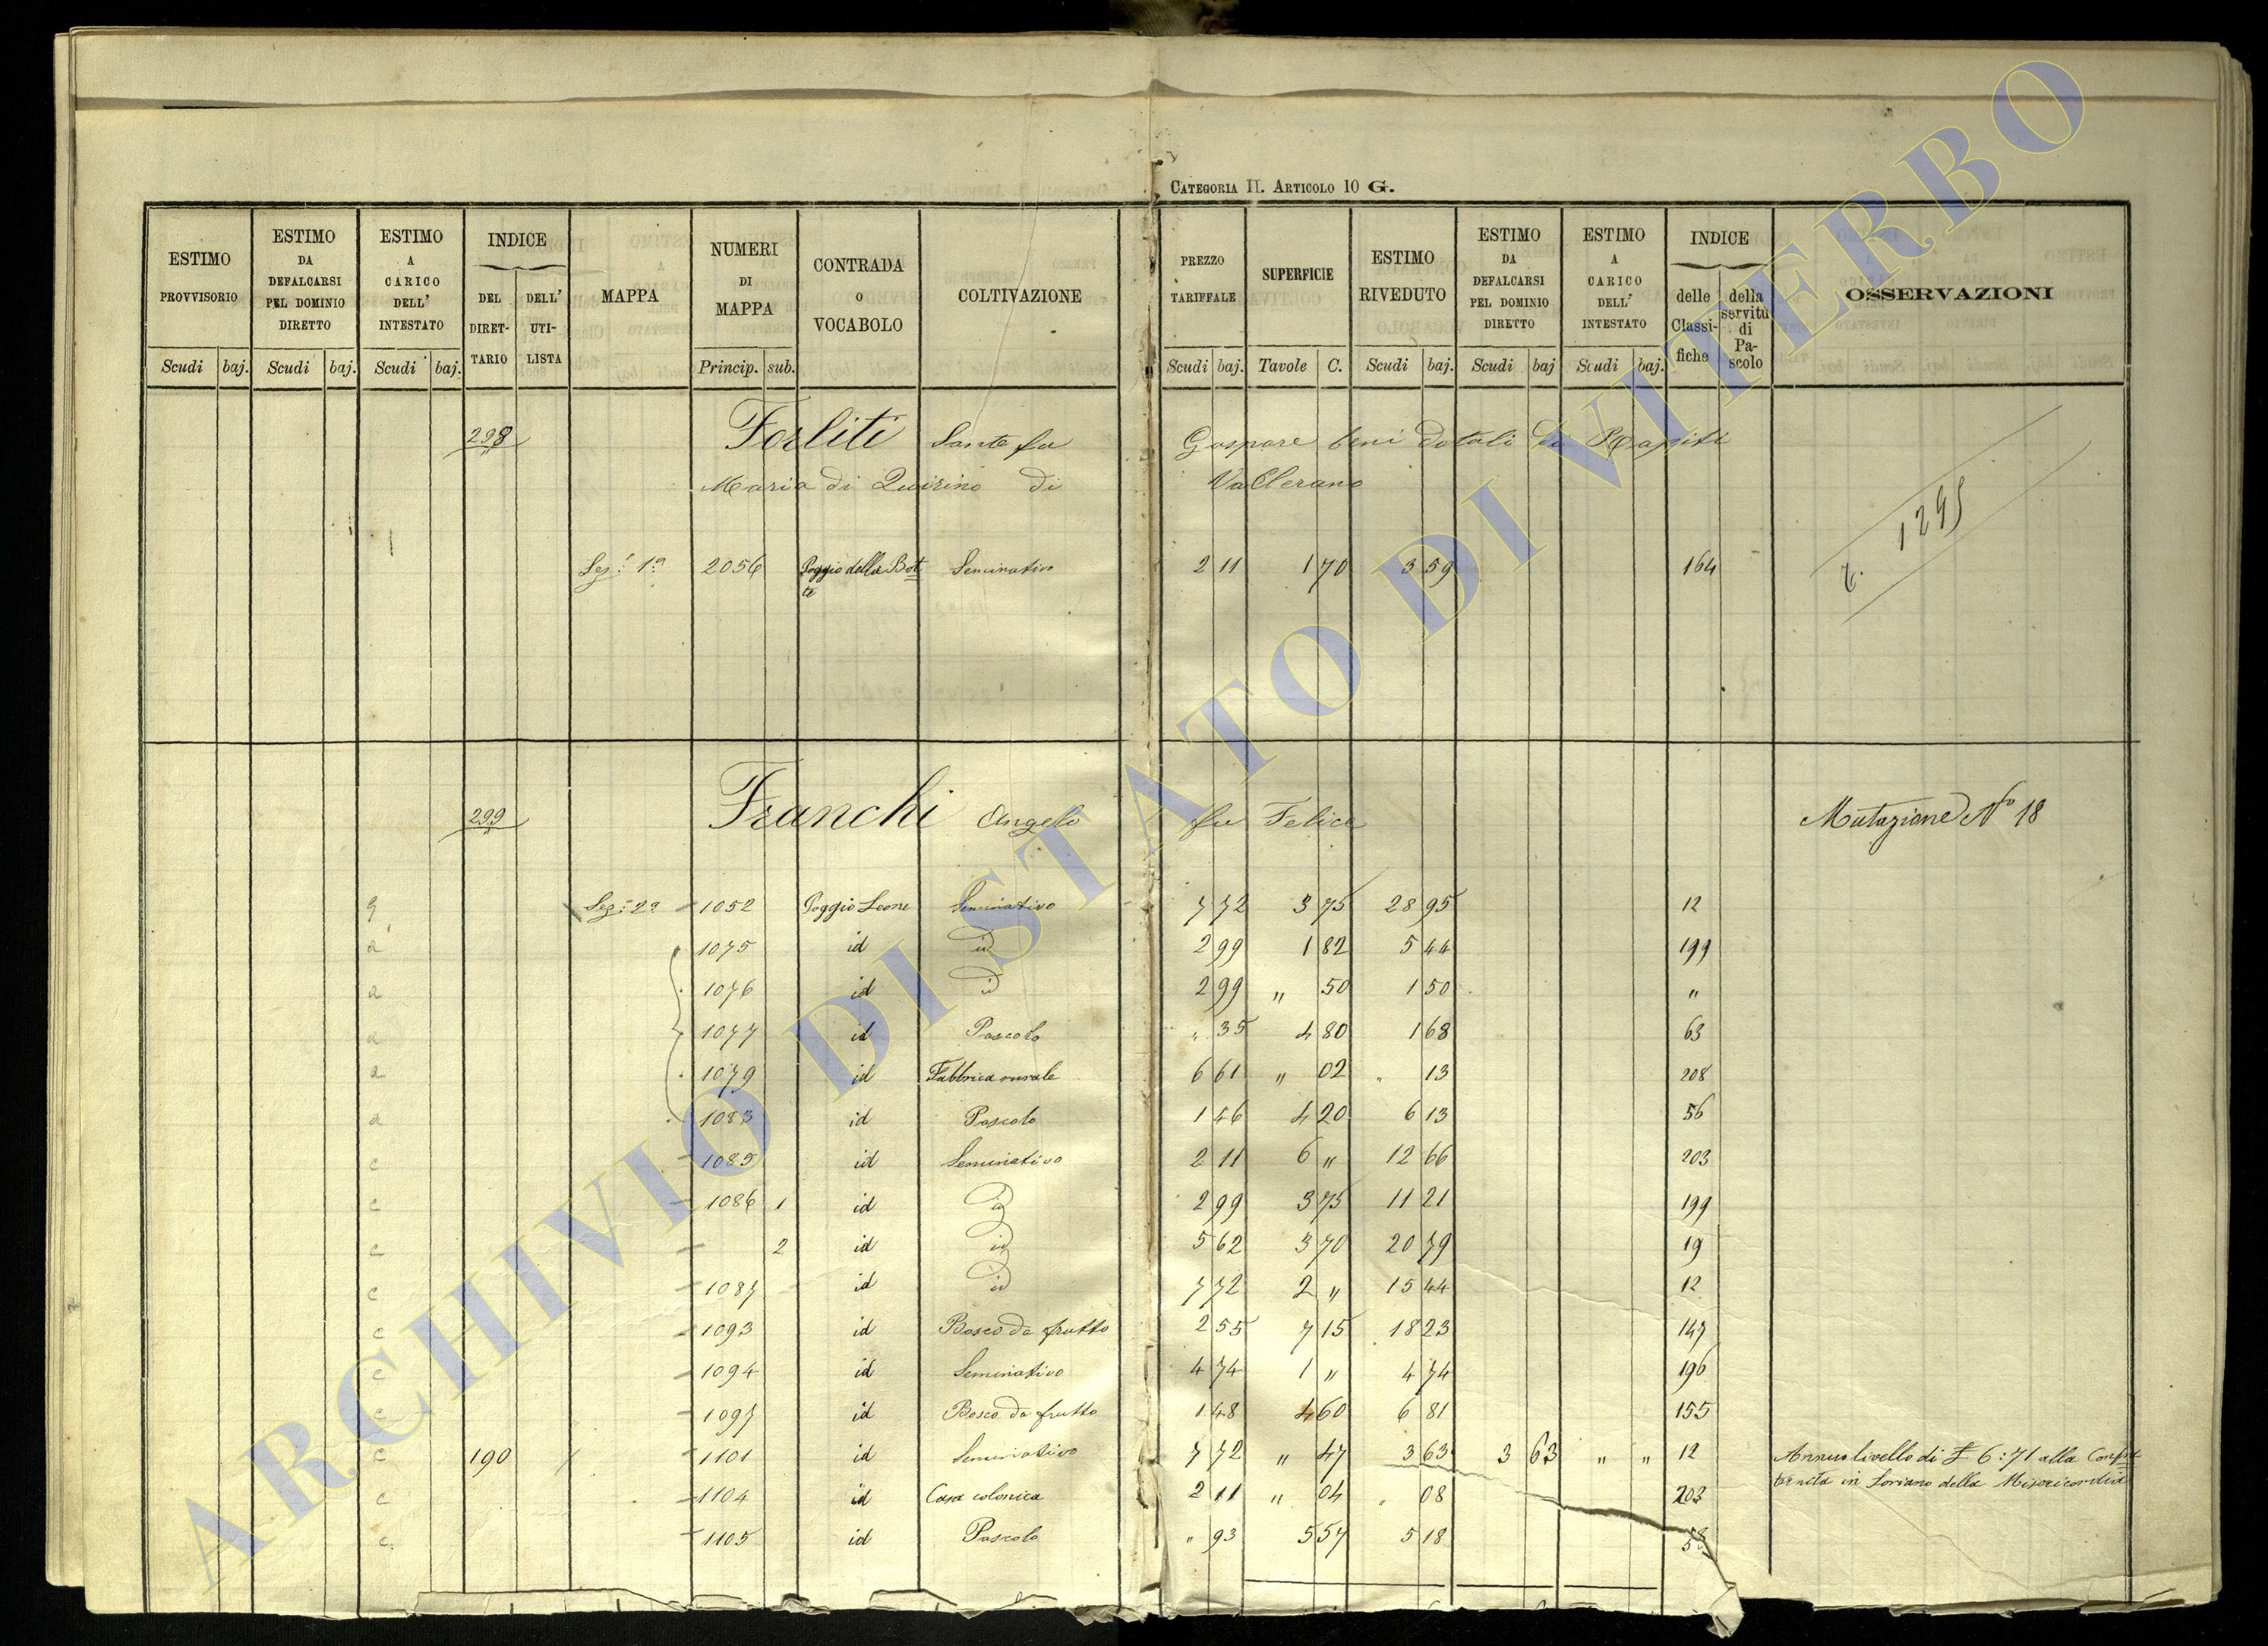 CATEGORIA II. ARTICOLO 10 G.
ESTIMO PROVVISORIO Scudi baj. | ESTIMO DA DEFALCARSI PEL DOMINIO DIRETTO Scudi baj. | ESTIMO A CARICO DELL' INTESTATO Scudi baj. | INDICE DEL DIRET-TARIO DELL' UTI-LISTA | MAPPA | NUMERI DI MAPPA Princip. sub. | CONTRADA O VOCABOLO | COLTIVAZIONE | PREZZO TARIFFALE Scudi baj. | SUPERFICIE Tavole C. | ESTIMO RIVEDUTO Scudi baj. | ESTIMO DA DEFALCARSI PEL DOMINIO DIRETTO Scudi baj | ESTIMO A CARICO DELL' INTESTATO Scudi baj. | INDICE delle Classi-fiche della servitù di Pa-scolo | OSSERVAZIONI
298 Forliti Sante fu Gaspare beni dotali di
Maria di Quirino di Vallerano
1295
Sez: 1a 2056 Poggio della Bot Seminativo 2 11 1 70 3 59 164
te
299 Franchi Angelo fu Felice Mutazione No 18
Sez: 2a 1052 Poggio Leone Seminativo 7 72 3 75 28 95 12
a 1075 id id 2 99 1 82 5 44 199
a 1076 id id 2 99 " 50 1 50 "
a 1077 id Pascolo " 35 4 80 1 68 63
a 1079 id Fabbrica rurale 6 61 " 02 " 13 208
a 1083 id Pascolo 1 46 4 20 6 13 56
c 1085 id Seminativo 2 11 6 " 12 66 203
c 1086 1 id id 2 99 3 75 11 21 199
c 2 id id 5 62 3 70 20 79 19
c 1087 id id 7 72 2 " 15 44 12
c 1093 id Bosco da frutto 2 55 7 15 18 23 147
c 1094 id Seminativo 4 74 1 " 4 74 196
c 1097 id Bosco da frutto 1 48 4 60 6 81 155
c 190 1101 id Seminativo 7 72 " 47 3 63 3 63 " " 12 Annuo livello di £ 6:71 alla Confra
ternita in Soriano della Misericordia
c 1104 id Casa colonica 2 11 " 04 " 08 203
c 1105 id Pascolo " 93 5 57 5 18 58
ARCHIVIO DI STATO DI VITERBO